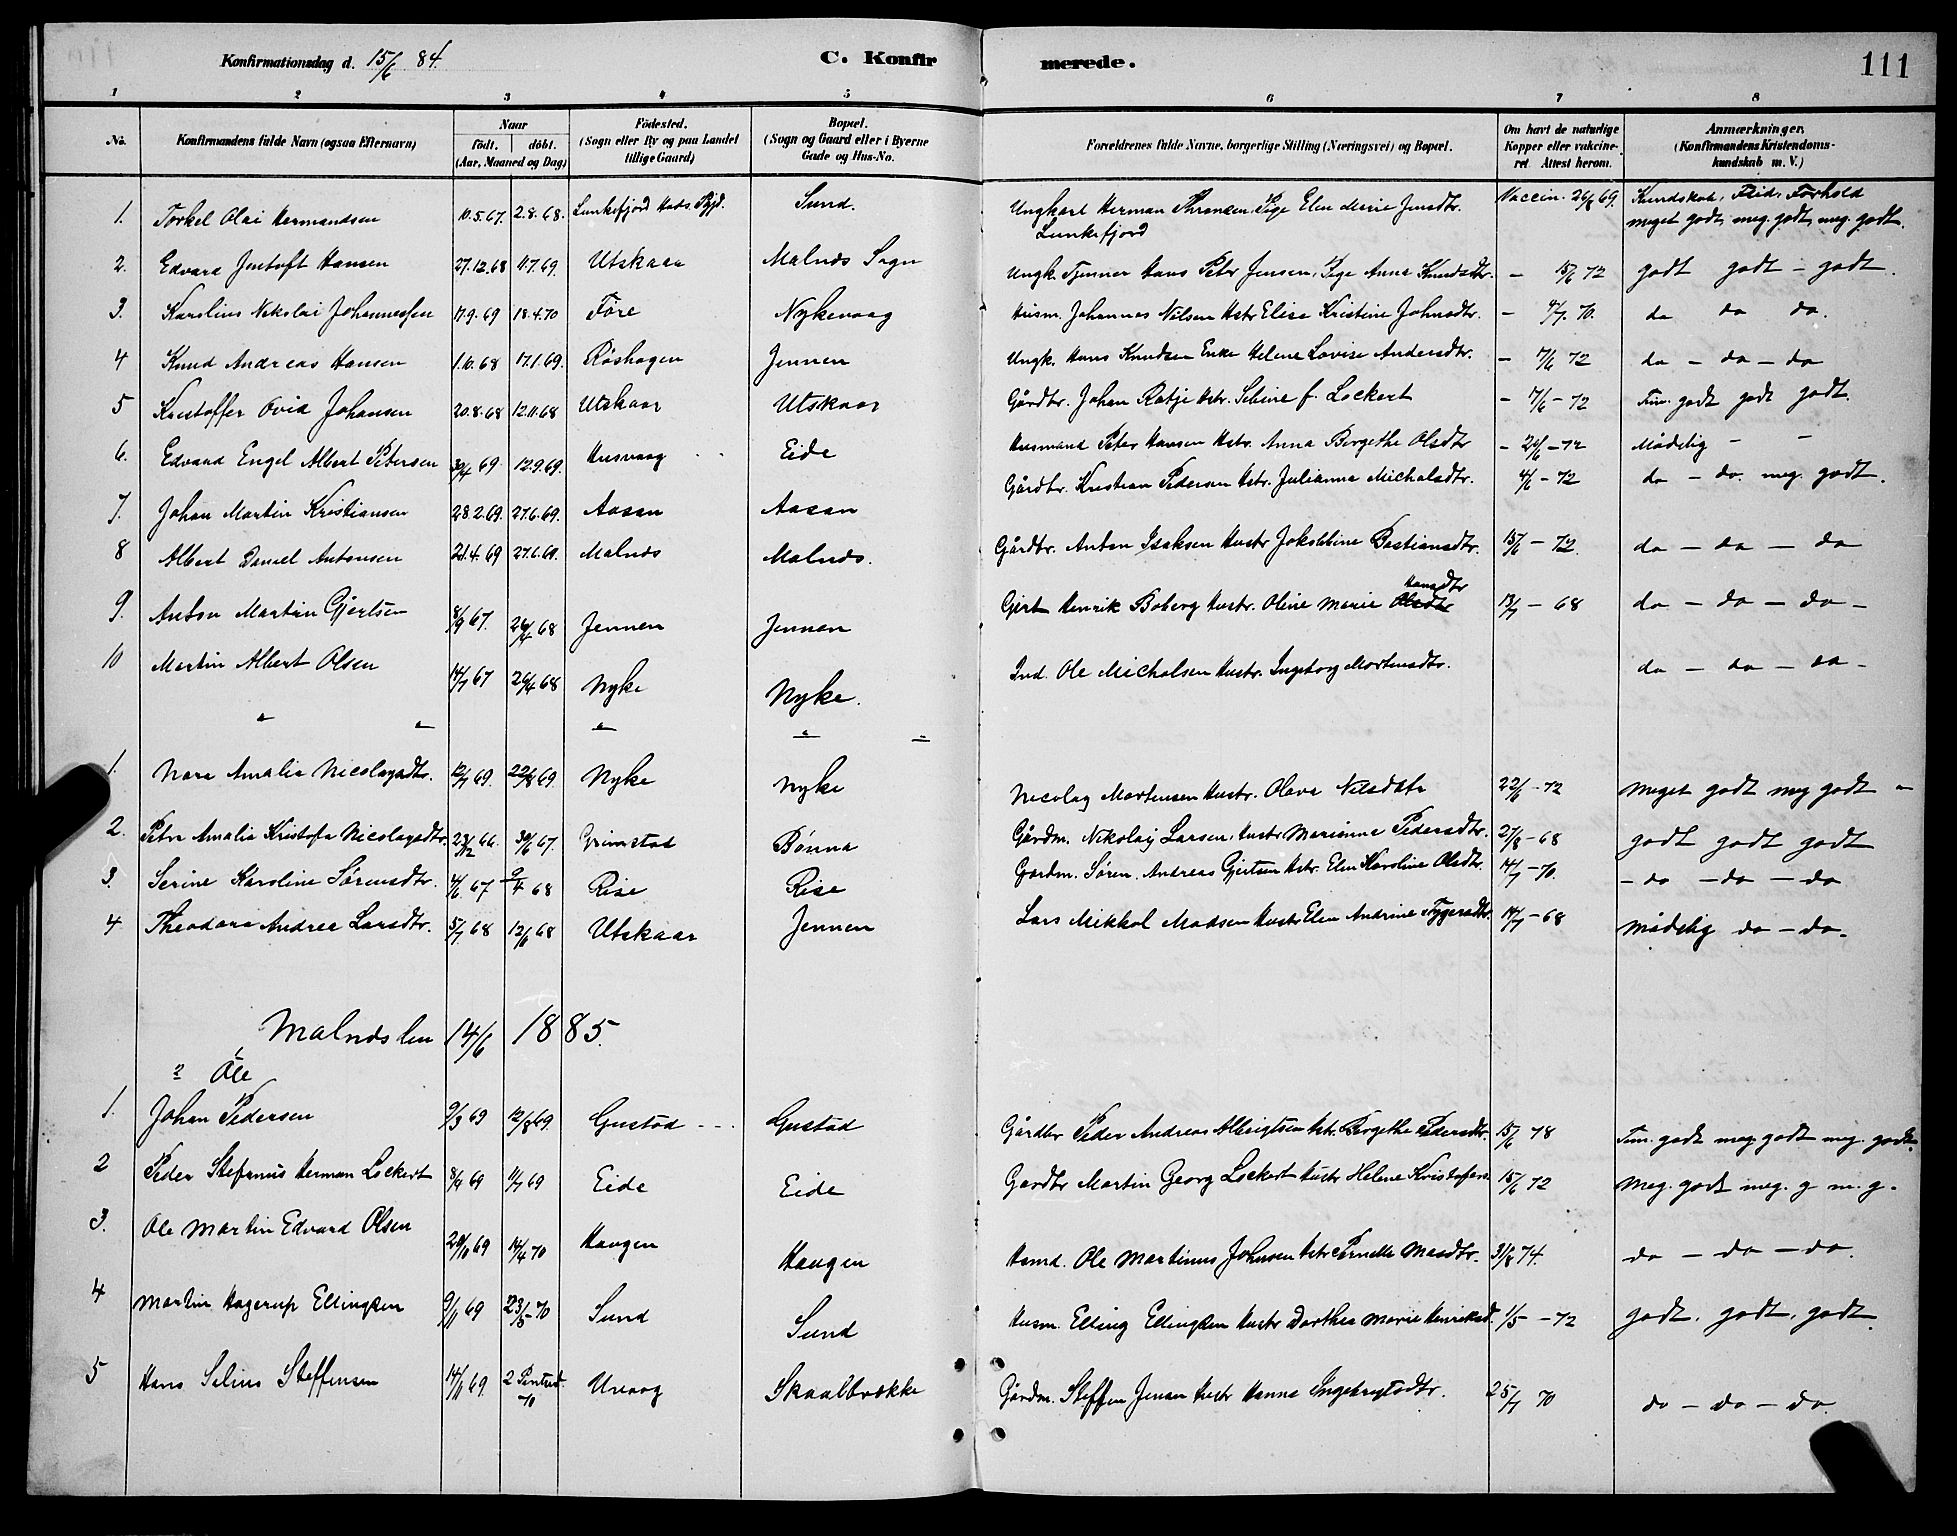 Konfirmationsdag d. 15/6 84. C. Konfirmerede. 111
1 2 3 4 5 6 7 8
No. Konfirmandens fulde Navn (ogsaa Efternavn) Naar født. døbt. (Aar, Maaned og Dag) Fødested. (Sogn eller By og paa Landet tillige Gaard) Bopæl. (Sogn og Gaard eller i Byerne Gade og Hus-No. Forældrenes fulde Navne, borgerlige Stilling (Næringsvei) og Bopæl. Om havt de naturlige Kopper eller vakcineret Attest herom. Anmærkninger. (Konfirmandens Kristendomskundskab m. V.)
1. Torkel Olai Hermandsen 10.5.67. 2.8.68. Lunkefjord Hads Sund. Ungkarl Herman Pige Elen Jensdtr. Lunkefjord Vaccin. 26/8 69. Kundskab, Flid, Forhold meget godt, meg. godt, meg. godt.
2. Edvard Jentoft Hansen 27.12.68 11.7.69. Utskaar Malnds Sogn Ungk. Tjenner Hans Peter Jensen, Pige Anna Knudsdtr. - 15/6 72 godt godt - godt.
3. Karolius Nikolai Johannessen 17.9.69 18.4.70 Føre Nykevaag Husm. Johannas Nilsen Hstr Elise Kristine Johnsdtr. - 70. do do do.
4 Knud Andreas Hansen 1.10.68 17.1.69. Røshagen Jennen Ungk. Hans Knudsen Enke Helene Lovise Andersdtr. - 7/6 72 do - do - do
5 Kristoffer Ovid Johansen 20.8.68 12.11.68 Utskaar Utskaar Gårdbr. Johan Ratje Hstr. Seline f. Lockert - 17/6 - 72 Tem. godt godt godt.
6. Edvard Engel Albert Petersen 30/4 69. 12.9.69. Husvaag Eide Husmand Peter Hansen Hstr. Anna Bergethe Olsdtr - 26/6 - 72 Mådelig - -
7. Johan Martin Kristiansen 28.2.69. 27.6.69. Aasan Aasan Gårdbr. Kristian Pedersen Hstr. Julianna Michalsdtr. 4/6 - 72 do - do. meg. godt.
8 Albert Daniel Antonsen 21.4.69 27.6.69. Malnds Malnds. Gårdbr. Anton Isaksen Hustr Jokobine Bastiansdtr. 15/6 - 72. do - do - do
9. Anton Martin Gjertsen 8/9 67. 26/4 68 Jennen Jennen Gjert Henrik Boberg Hustr. Oline Marie Olsdtr Hansdtr 13/7 - 68 do - do - do -
10 Martin Albert Olsen 14/7 67 26/4 68 Nyke Nyke. Ind. Ole Micholsen Hustr. Ingeborg Mortensdtr. do - do - do -
" " " " "
1. Nora Amalia Nicolaysdtr. 12/7 69. 22/8 69 Nyke Nyke Nicolay Mortensen Hustr. Olava Nilsdatr 22/6 - 72 Meget godt meg godt -
2. Petra Amalia Kristofa Nicolaysdtr. 23/12 66. 30/6 67. Grimstad Bønna Gårdm. Nikolaj Larsen, Hustr Marianna Pedersdtr. 27/8 - 68 godt godt godt
3. Serine Karoline Sørensdtr. 4/6 67 2/4 68 Rise Rise Gardm. Søren Andreas Gjertsen Hstr. Elen Karoline Olsdtr. 14/7 - 70 - do - do - do
4 Theodora Andrea Larsdtr. 5/7 68 12/6 68 Utskaar Jennen Lars Mikkol Madsen Hustr Elen Andrine 14/7 - 68 mådelig do - do.
Malnds den 14/6 1885.
Ole
1. Johan Pedersen 9/3 69 12/8 69. Gustad Gustad Gårdbr Peder Andreas Albrigtsen hstr. Birgethe Pedersdtr. 15/6 78 Tem. godt meg godt meg. godt.
2 Peder Stefanus Herman Lockert 8/4 69 11/7 69 Eide Eide Gardbr Martin Georg Lockert hustr Helene 15/6 72 Meg. godt meg. g m. g.
3. Ole Martin Edvard Olsen 20/10 69 14/4 70 Haugen Haugen Husmd. Ole Martinus Johnsen hstr Pernelle Masdtr. 31/8 74. do - do - do.
4 Martin Hagerup Ellingsen 9/11 69 23/5 70 Sund Sund Husm. Elling Ellingsen Hustr Dorthea Marie Henriksd. 1/5 - 72 godt, godt, godt
5 Hans Selius Steffensen 14/11 69. 2 70 Uvaag Skaalbrække Gårdm. Steffen Jensen Hustr Hanna Ingebrigtsdtr. 25/7 70 do - do - do.